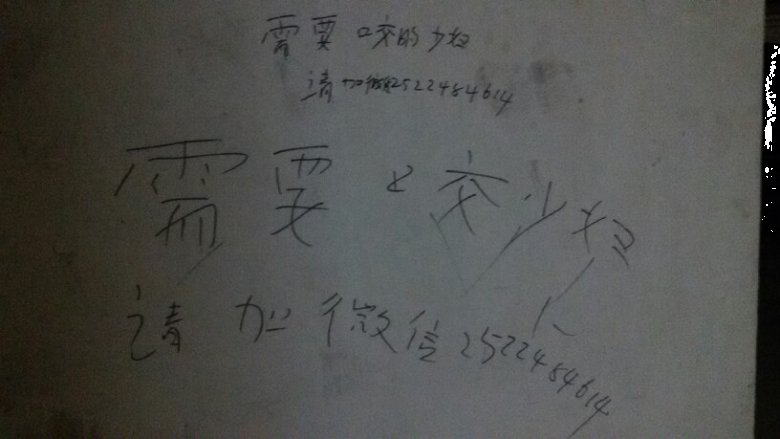 需要咬的少妇
请加微信2522484614
需要咬少妇
请加微信2522484614